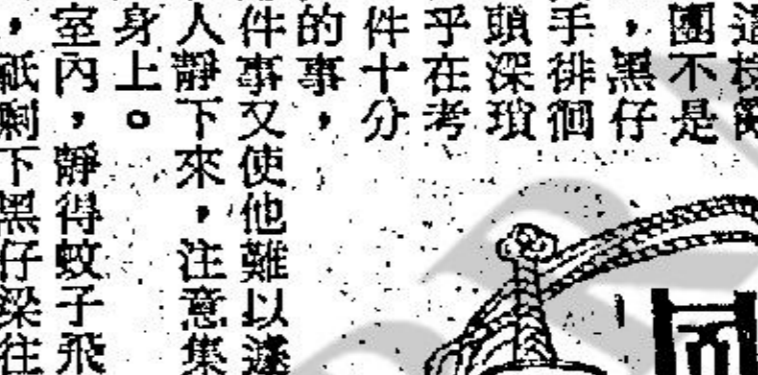 團不是
，黑仔
手徘徊
頭深瑣
乎在考
件十分
的事，
件事又使他難以遂
人靜下來，注意集
身上。
室內，靜得蚊子飛
，祇剩下黑仔梁往